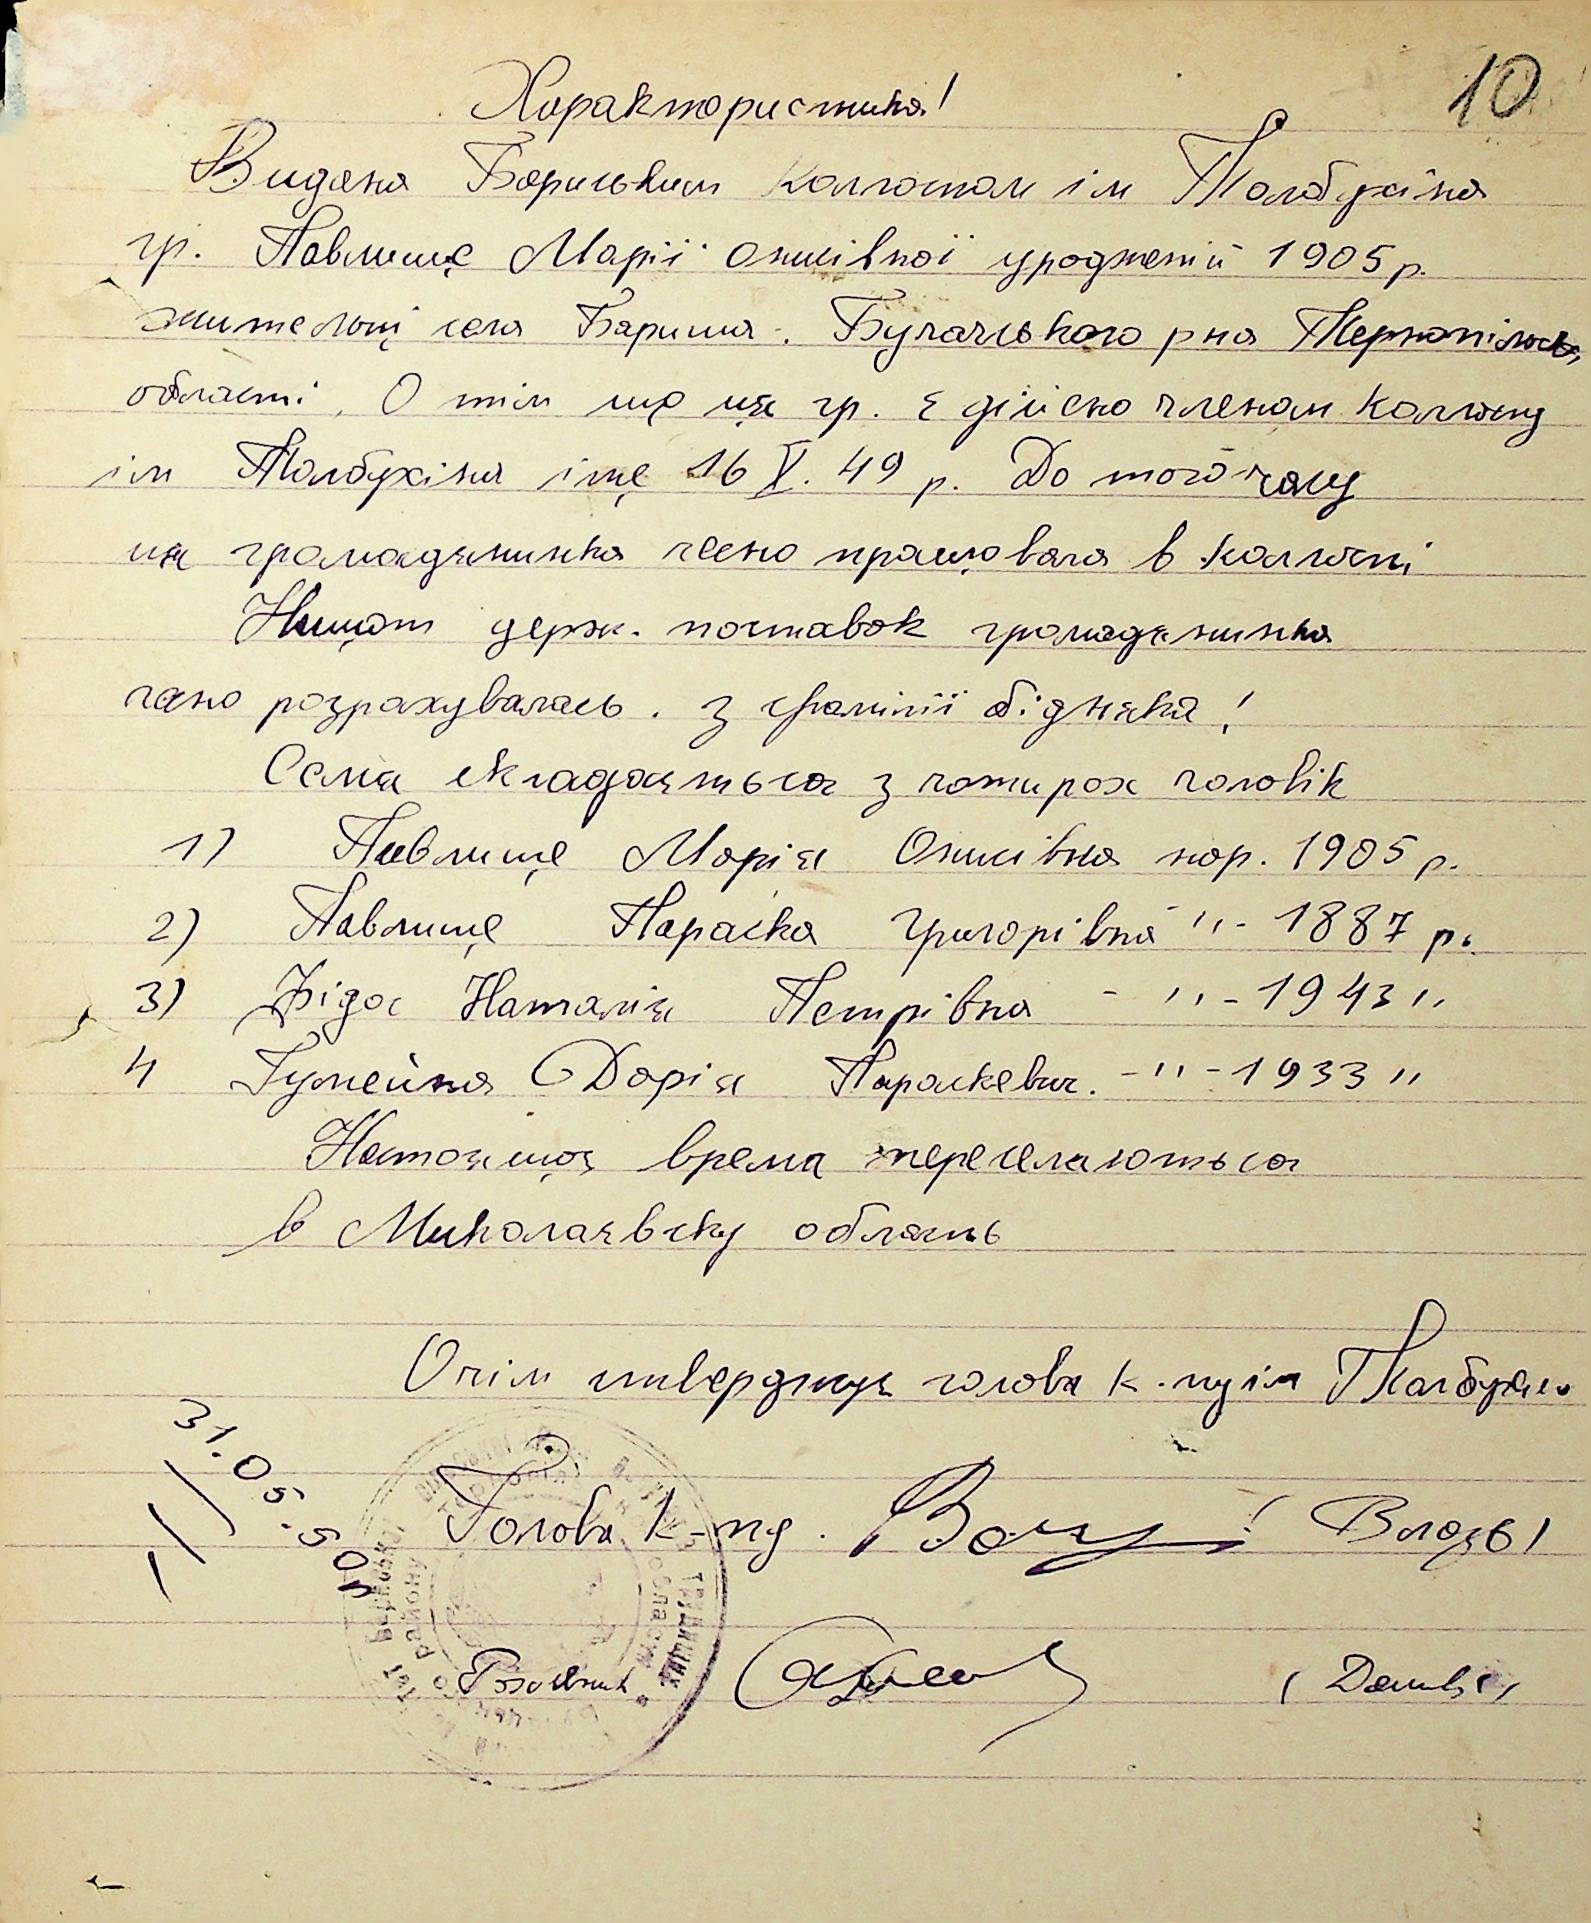 10
Характористика!
Видана Бариським Колгоспом ім Толбухіна
гр. Павлище Марії Онисівної уродженій 1905 р.
жительці села Бариша. Бучачського рна Тернопільськ
області. О тім що ця гр. є дійсно членом Колгоспу
ім Толбухіна іще 16 V. 49 р. До того часу
ця громадянинка чесно працювала в колгоспі
держ. поставок громадянинка
чесно розрахувалась. з фамілії бідняка!
Семя складається з чотирох чоловік
1) Павлище Марія Онисівна нар. 1905 р.
2) Павлище Параска Григорівна " - 1887 р.
3) Фідос Наталія Петрівна - " - 1943 "
4 Гумейна Дарія Параскевич. - " - 1933 "
Настоящоя врема переселаються
в Миколаєвску область
Очім стверджує голова к-пу ім Толбухіна
31.05.50 р
Голова К-пу.